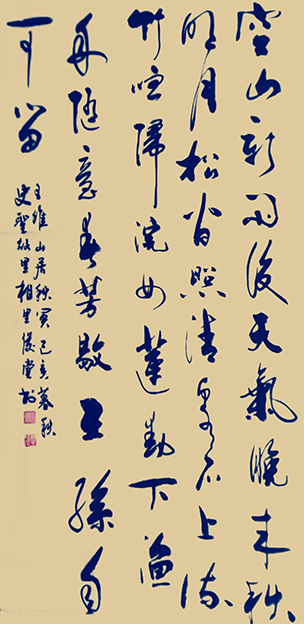 空山新雨後天氣晚来秋
明月松间照清泉石上流
竹喧歸浣女蓮動下漁
舟随意春芳歇王孫自
可留
王維山居秋冥己亥暮秋
史聖故里相里俊堂